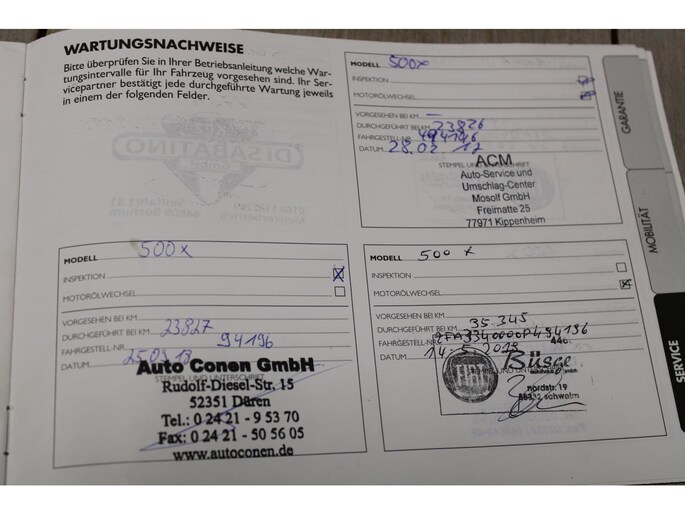 WARTUNGSNACHWEISE
Bitte überprüfen Sie in Ihrer Betriebsanleitung welche War-
tungsintervalle für Ihr Fahrzeug vorgesehen sind. Ihr Ser-
vicepartner bestätigt jede durchgeführte Wartung jeweils
in einem der folgenden Felder.
MODELL 500x
INSPEKTION
MOTORÖLWECHSEL
VORGESEHEN BEI KM —
DURCHGEFÜHRT BEI KM 23826
FAHRGESTELL-NR. 494196
DATUM 28.02 17
STEMPEL UND UNTERSCHRIFT
ACM
Auto-Service und
Umschlag-Center
Mosolf GmbH
Freimatte 25
77971 Kippenheim
DI SABATINO
44809 Bochum
MODELL 500x
INSPEKTION
MOTORÖLWECHSEL
VORGESEHEN BEI KM
DURCHGEFÜHRT BEI KM 23827
FAHRGESTELL-NR. 94196
DATUM
STEMPEL UND UNTERSCHRIFT
Auto Conen GmbH
Rudolf-Diesel-Str. 15
52351 Düren
Tel.: 0 24 21 - 9 53 70
Fax: 0 24 21 - 50 56 05
www.autoconen.de
MODELL 500 x
INSPEKTION
MOTORÖLWECHSEL
VORGESEHEN BEI KM
DURCHGEFÜHRT BEI KM 35.345
FAHRGESTELL-NR.
DATUM
nordstr. 19
schwelm
GARANTIE
MOBILITÄT
SERVICE